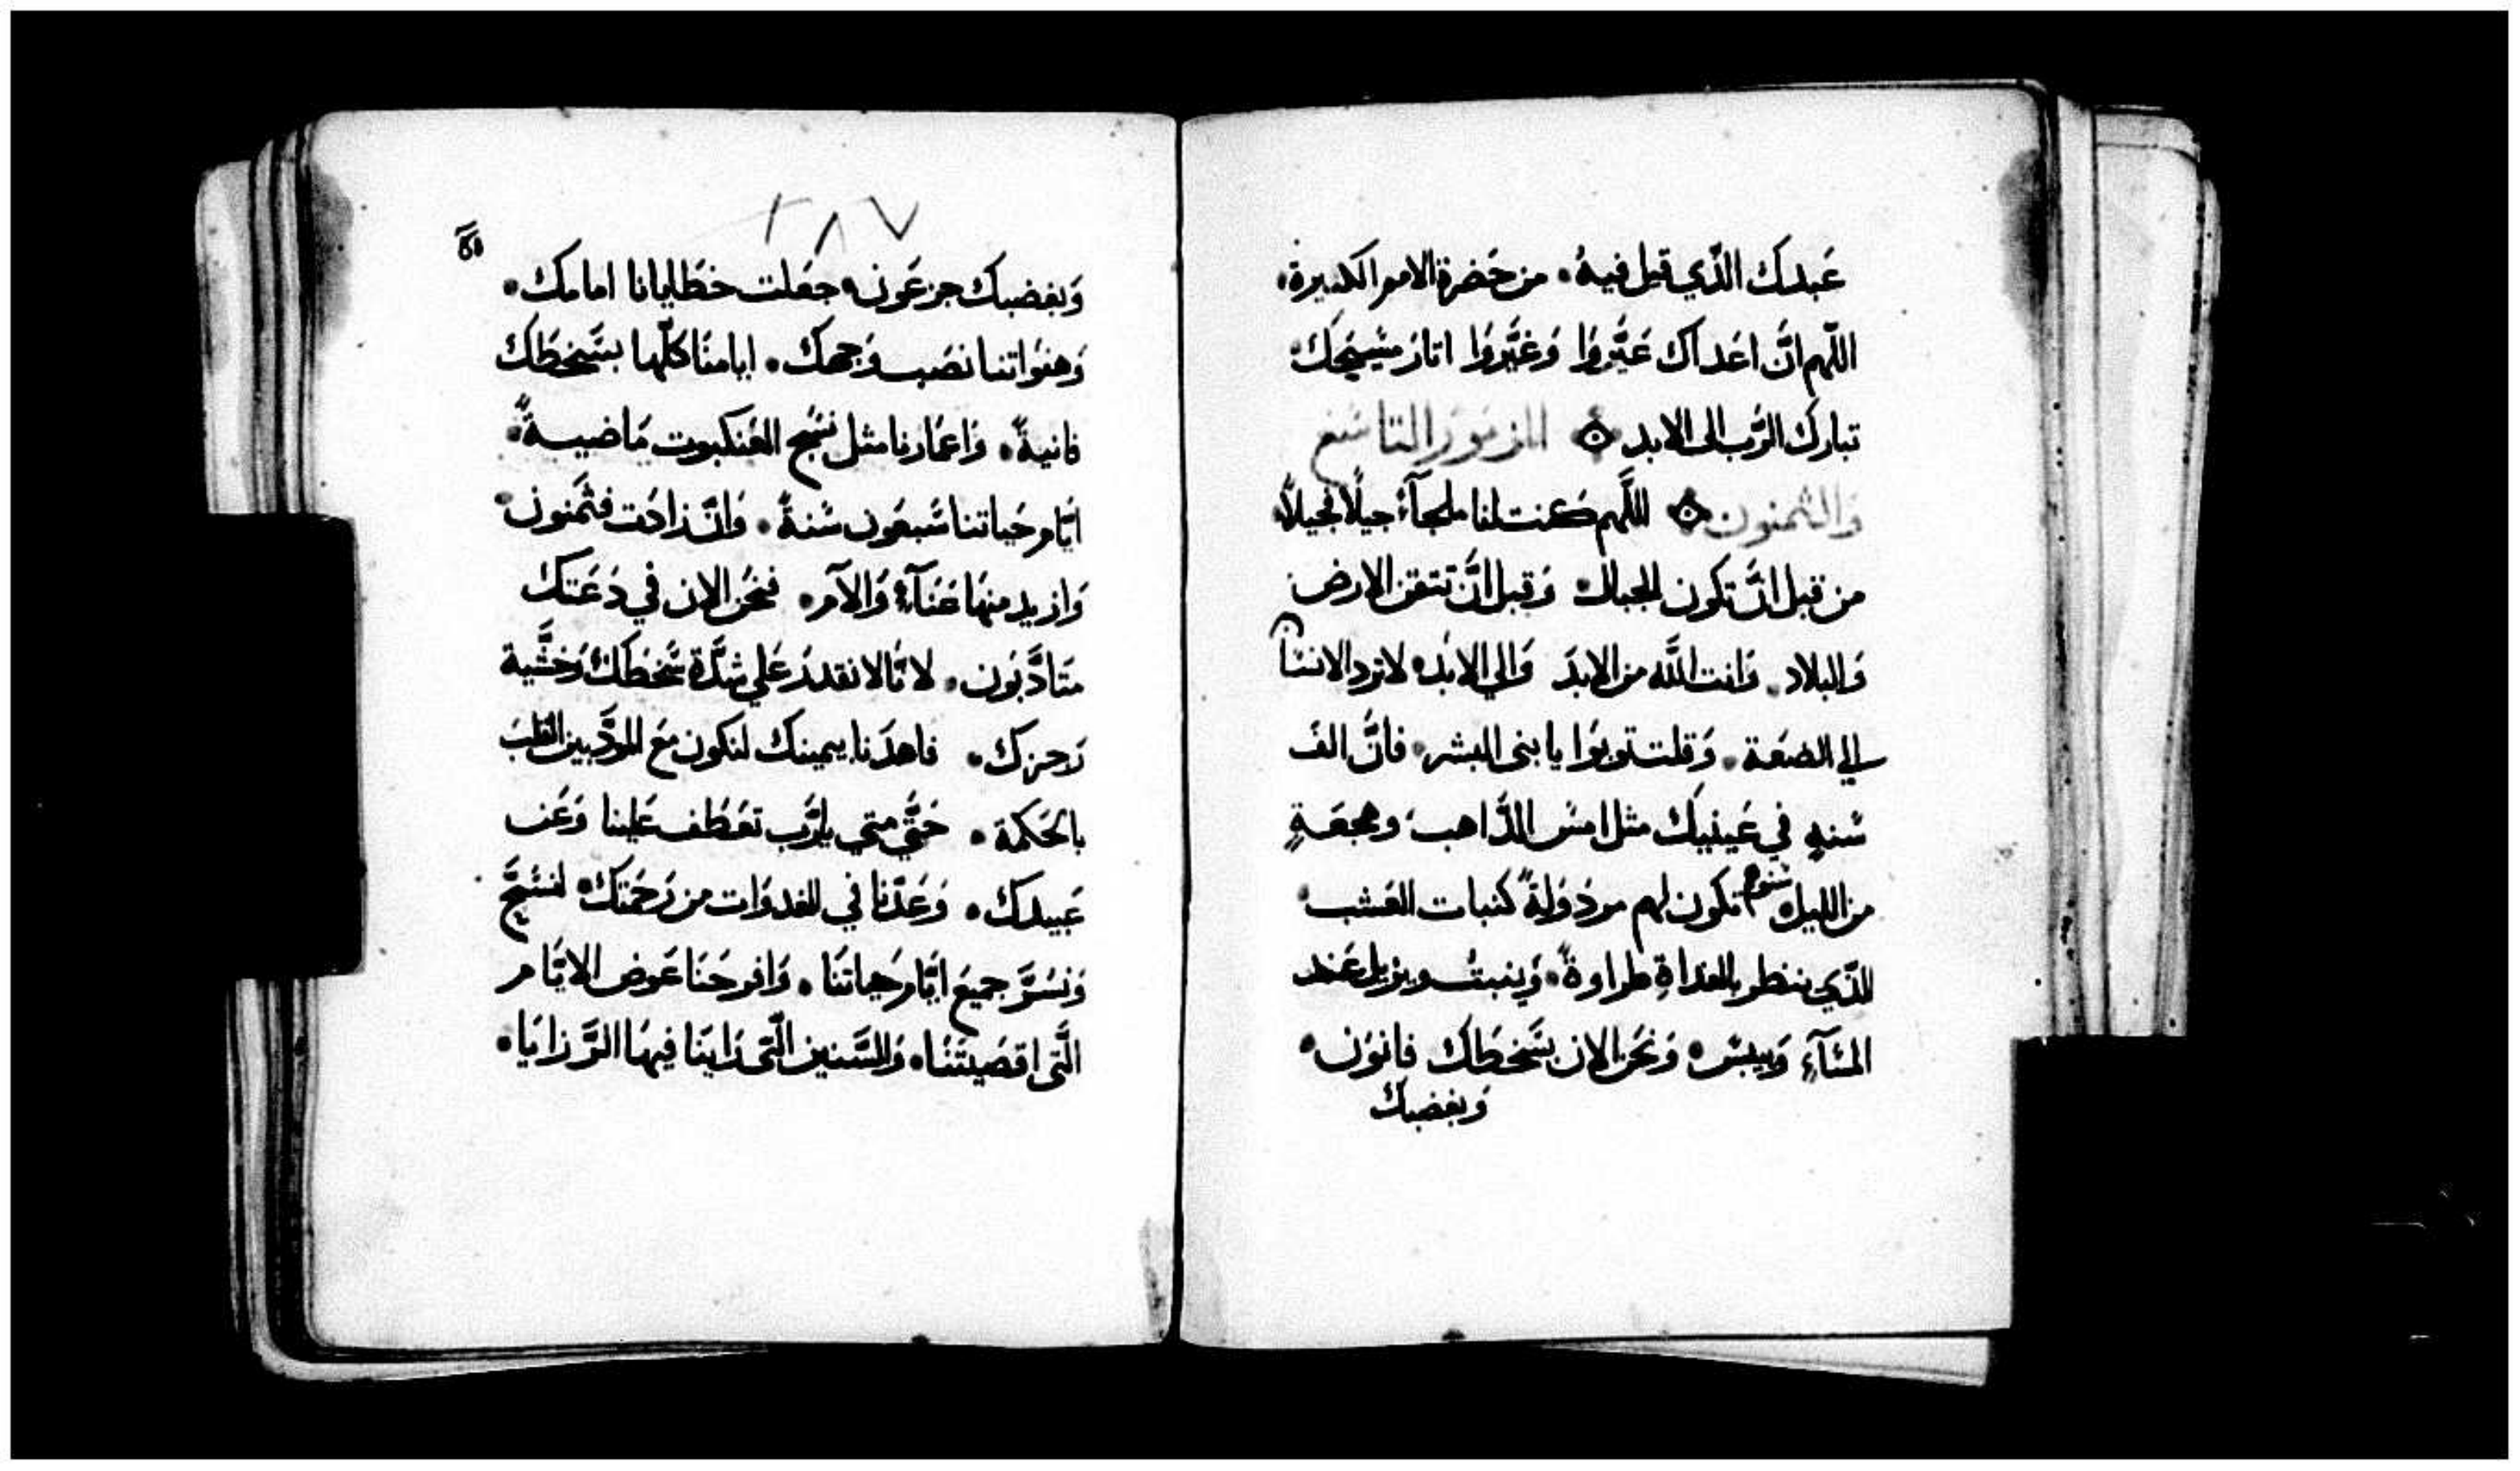 عَبدك الذّي قبل فيهُ • من حَضرة الامم الكثيرة •
اللّهم انَّ اعَداك عَيَّروُا وَغيَّروُا اثار مَسِيحِكَ •
تبارك الرَّب الى الابد المزمَور التاسَع
وَالثمنون اللَّهم كنت لنا ملجآءً جيلًا فجيلًا •
من قبل انَّ تكون الجبال وَقبل انَّ تتقن الارض
وَالبلاد • وَانت اللَّه من الابدَ وَالي الابد • لا ترد الانسَان
الي الضعَة • وَقلت توبوُا يا بنى البشر • فانَّ الفَ
سَنهٍ في عَينيك مثل امسَ الذَّاهب • وهجعَةٍ
من الليل • سَنوهم تكون لهم مرذولةً كنبات العَشب •
الذّي ينظر بالغداةِ طراوةً • وَينبتُ ويزيل عَند
المسَآءِ وَييبسَ • وَنحَن الان بسَخطَك فانوُن •
وَبغضبك
٢٨٧
وَبغضبك جزعَون • جعَلت خطَايانا امامك •
وَهفوَاتنا نصَب وَجهك • ايامنَا كلّها بسَّخطَك
فانيةً • وَاعمَارنا مثل نسَج العَنكبوت مَاضيةً •
ايَّام حَياتنا سَبعَون سَنةً • وَانَّ زادَت فثمَنون •
وَازيد منهَا عَنَآءً وَالآم • فنحَن الان في دَعَتك
متَادَّبوَن • لانَّا لا نقدر عَلي شدَّة سَّخطَك وَخشَّية
رَجزك • فاهدَنا يمينك لنكون مَع المودَّبين القلبَ
بالحَكمة • حَتَّي متي يارَّب تعَطَف عَلينا وَعَن
عَبيدك • وَعَدّنا في الغدوَات من رَحمَتك • لنسَبّحَ
وَنسَرَّ جميعَ ايَّام حَياتنَا • وَافرحَنَا عَوض الايَّام
الَّتى اقصَيتنَا • وَالسَّنين الّتى رَاينَا فيهَا الرَّزايَا •